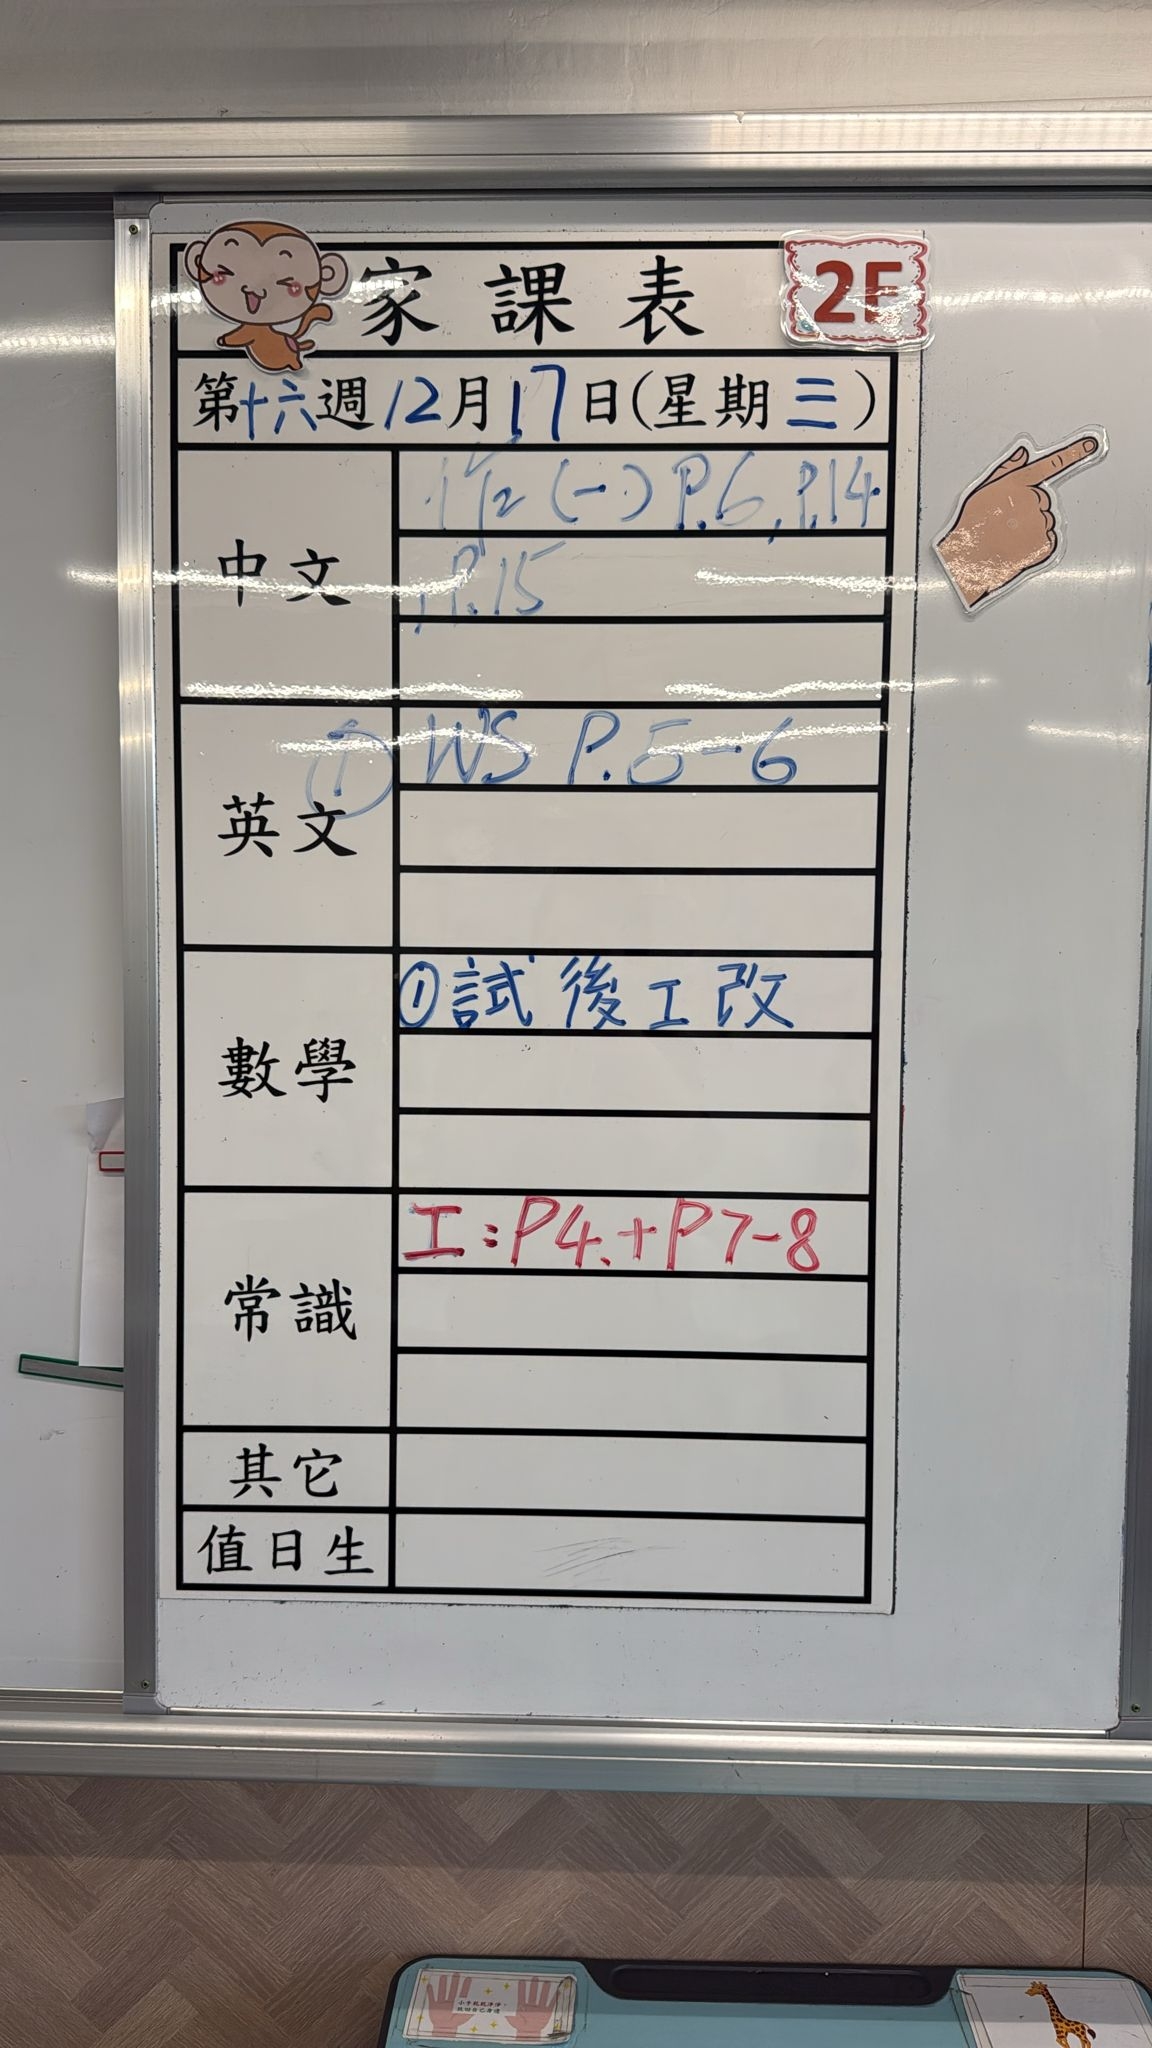 家課表 2F
第十六週12月17日(星期三)
中文
(一) P.6, P.14
, P.15
英文
① WS P.5-6
數學
①試後工改
常識
工:P4.+P7-8
其它
值日生